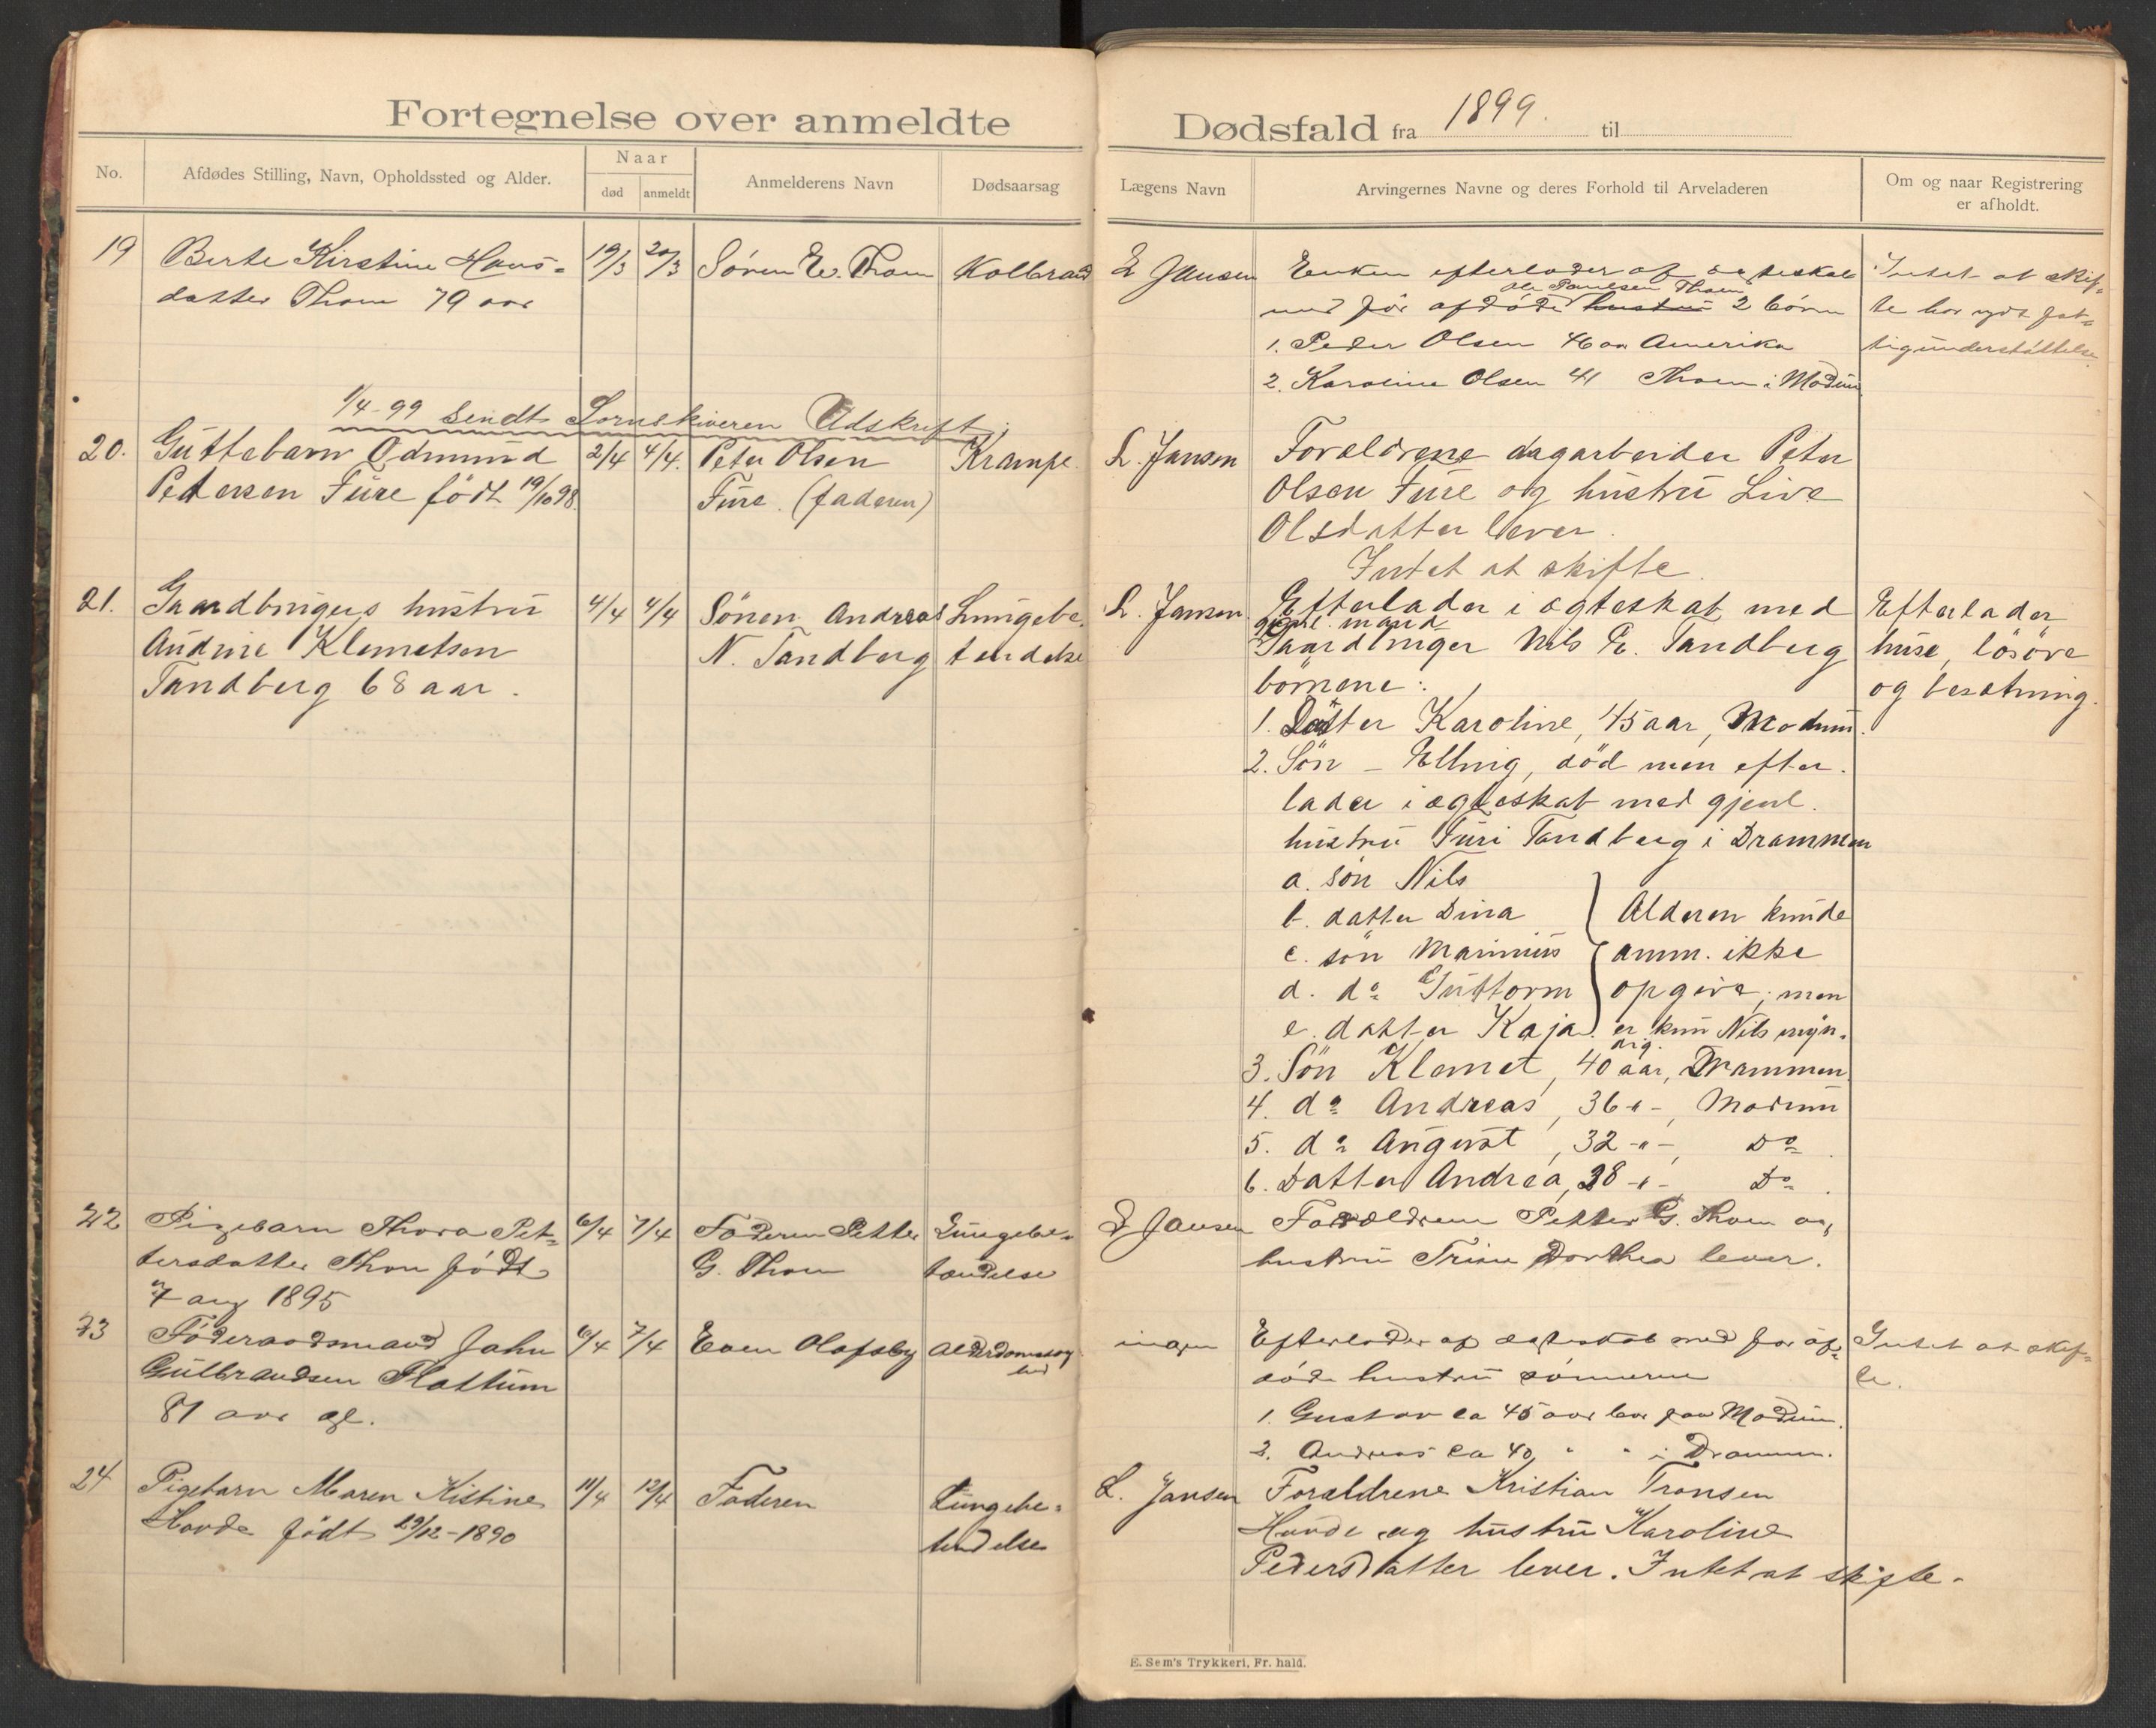 Fortegnelse over anmeldte
Dødsfald fra 1899. til
No.
Afdødes Stilling, Navn, Opholdssted og Alder.
Naar
død
anmeldt
Anmelderens Navn
Dødsaarsag
Lægens Navn
Arvingernes Navne og deres Forhold til Arveladeren
Om og naar Registrering
er afholdt.
19 Berte Kirstine Hans=
datter Thoen 79 aar
19/3 20/3
Søren E. Thoen
Koldbrand
L Jansen
Enken efterlader af ægteskab
Ole Paulsen Thoen
med før afdøde hustru 2 børn
1. Peder Olsen 46 aar Amerika
2. Karoline Olsen 41 Thoen i Modum
Intet at skif=
te har nydt fat=
tigunderstøttelse
1/4-99 sendt Sorenskriveren Udskrift.
20. Guttebarn Edmund
Petersen Fure født 19/10 98.
2/4 4/4.
Peter Olsen
Fure. (faderen)
Krampe
L. Jansen
Forældrene dagarbeider Peter
Olsen Fure og hustru Live
Olsdatter lever.
Intet at skifte.
21. Gaardbrugers hustru
Andrine Klemetsen
Tandberg 68 aar.
4/4 4/4
Sönen Andreas
N. Tandberg
Lungebe.
tendelse
L. Jansen
Efterlader i ægteskab med
gjenl. mand
Gaardbruger Nils E. Tandberg
börnene:
1. Datter Karoline, 45 aar, Modum.
2. Sön – Elling, död men efter.
lader i ægteskab med gjenl.
hustru Guri Tandberg i Drammen
a. sön Nils
b. datter Dina
c. sön Marinius
d. do Guttorm
e. datter Kaja.
Alderen kunde
anm. ikke
opgive, men
er kun Nils myn.
dig.
3. Sön Klemet, 40 aar, Drammen
4. do Andreas, 36 -"-, Modum
5. do August, 32 -"-, Do
6. Datter Andrea, 28 -"- Do.
Efterlader
huse, lösöre
og besætning.
22 Pigebarn Thora Pet=
tersdatter Thoen født
7 aug 1895
6/4 7/4
Faderen Petter
G. Thoen
Lungebe=
tændelse
L Jansen
Forældrene Petter G. Thoen og
hustru Trine Dorthea lever.
23 Föderaadsmand John
Gulbrandsen Flattum
81 aar gl.
6/4 7/4
Even Olafsby
Alderdomssvag
hed
ingen
Efterlader af ægteskab med før af=
døde hustru sønnerne
1. Gustav ca 45 aar bor paa Modum.
2. Andreas ca 40 " " i Drammen.
Intet at skif=
te.
24 Pigebarn Maren Kistine
Hovde født 29/12-1890
11/4 12/4
Faderen
Lungebe=
tendelse
L. Jansen
Forældrene Kristian Transen
Hovde og hustru Karoline
Pedersdatter lever. Intet at skifte.
E. Sem's Trykkeri, Fr. hald.